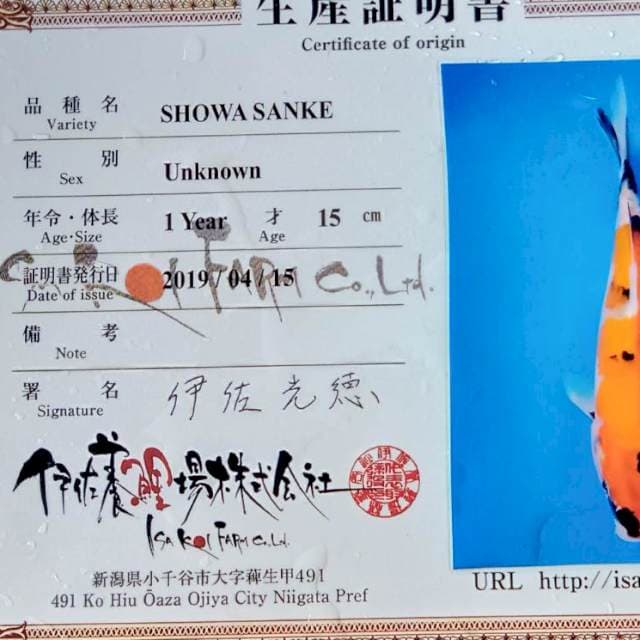 生産証明書
Certificate of origin
品種名
Variety
SHOWA SANKE
性別
Sex
Unknown
年令・体長
Age・Size
1 Year 才 15 cm
Age
証明書発行日
Date of issue
2019/04/15
Koi Farm Co., Ltd.
備考
Note
署名
Signature
伊佐光徳
伊佐養鯉場株式会社
ISA KOI FARM Co.,Ltd.
新潟県小千谷市大字薭生甲491
491 Ko Hiu Ōaza Ojiya City Niigata Pref
URL http://isa